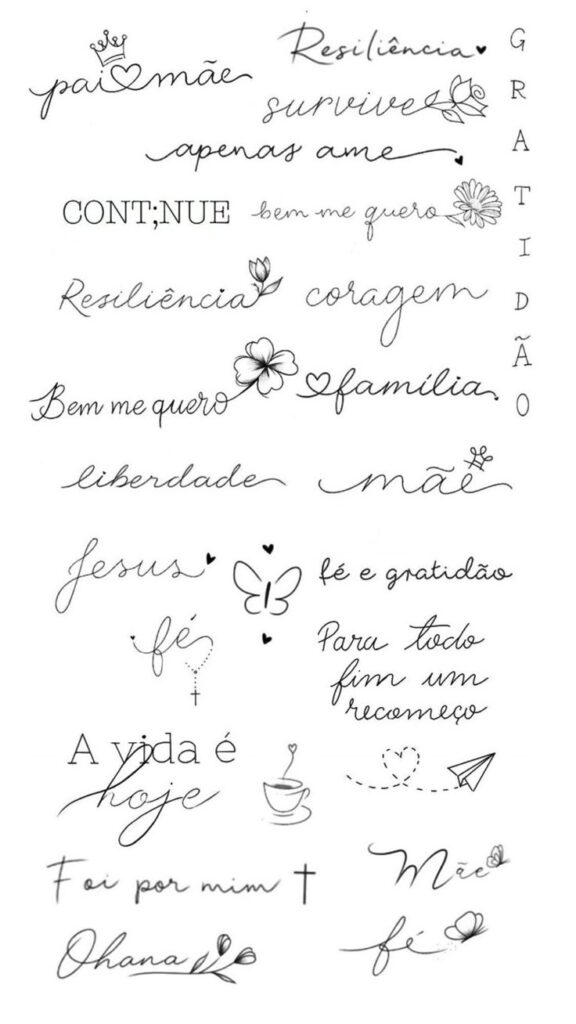 pai mãe
Resiliência
survive
apenas ame
GRATIDÃO
CONT;NUE
bem me quero
Resiliência
coragem
Bem me quero
família
liberdade
mãe
Jesus
fé e gratidão
fé
Para todo
fim um
recomeço
A vida é
hoje
Foi por mim
Mãe
Ohana
fé